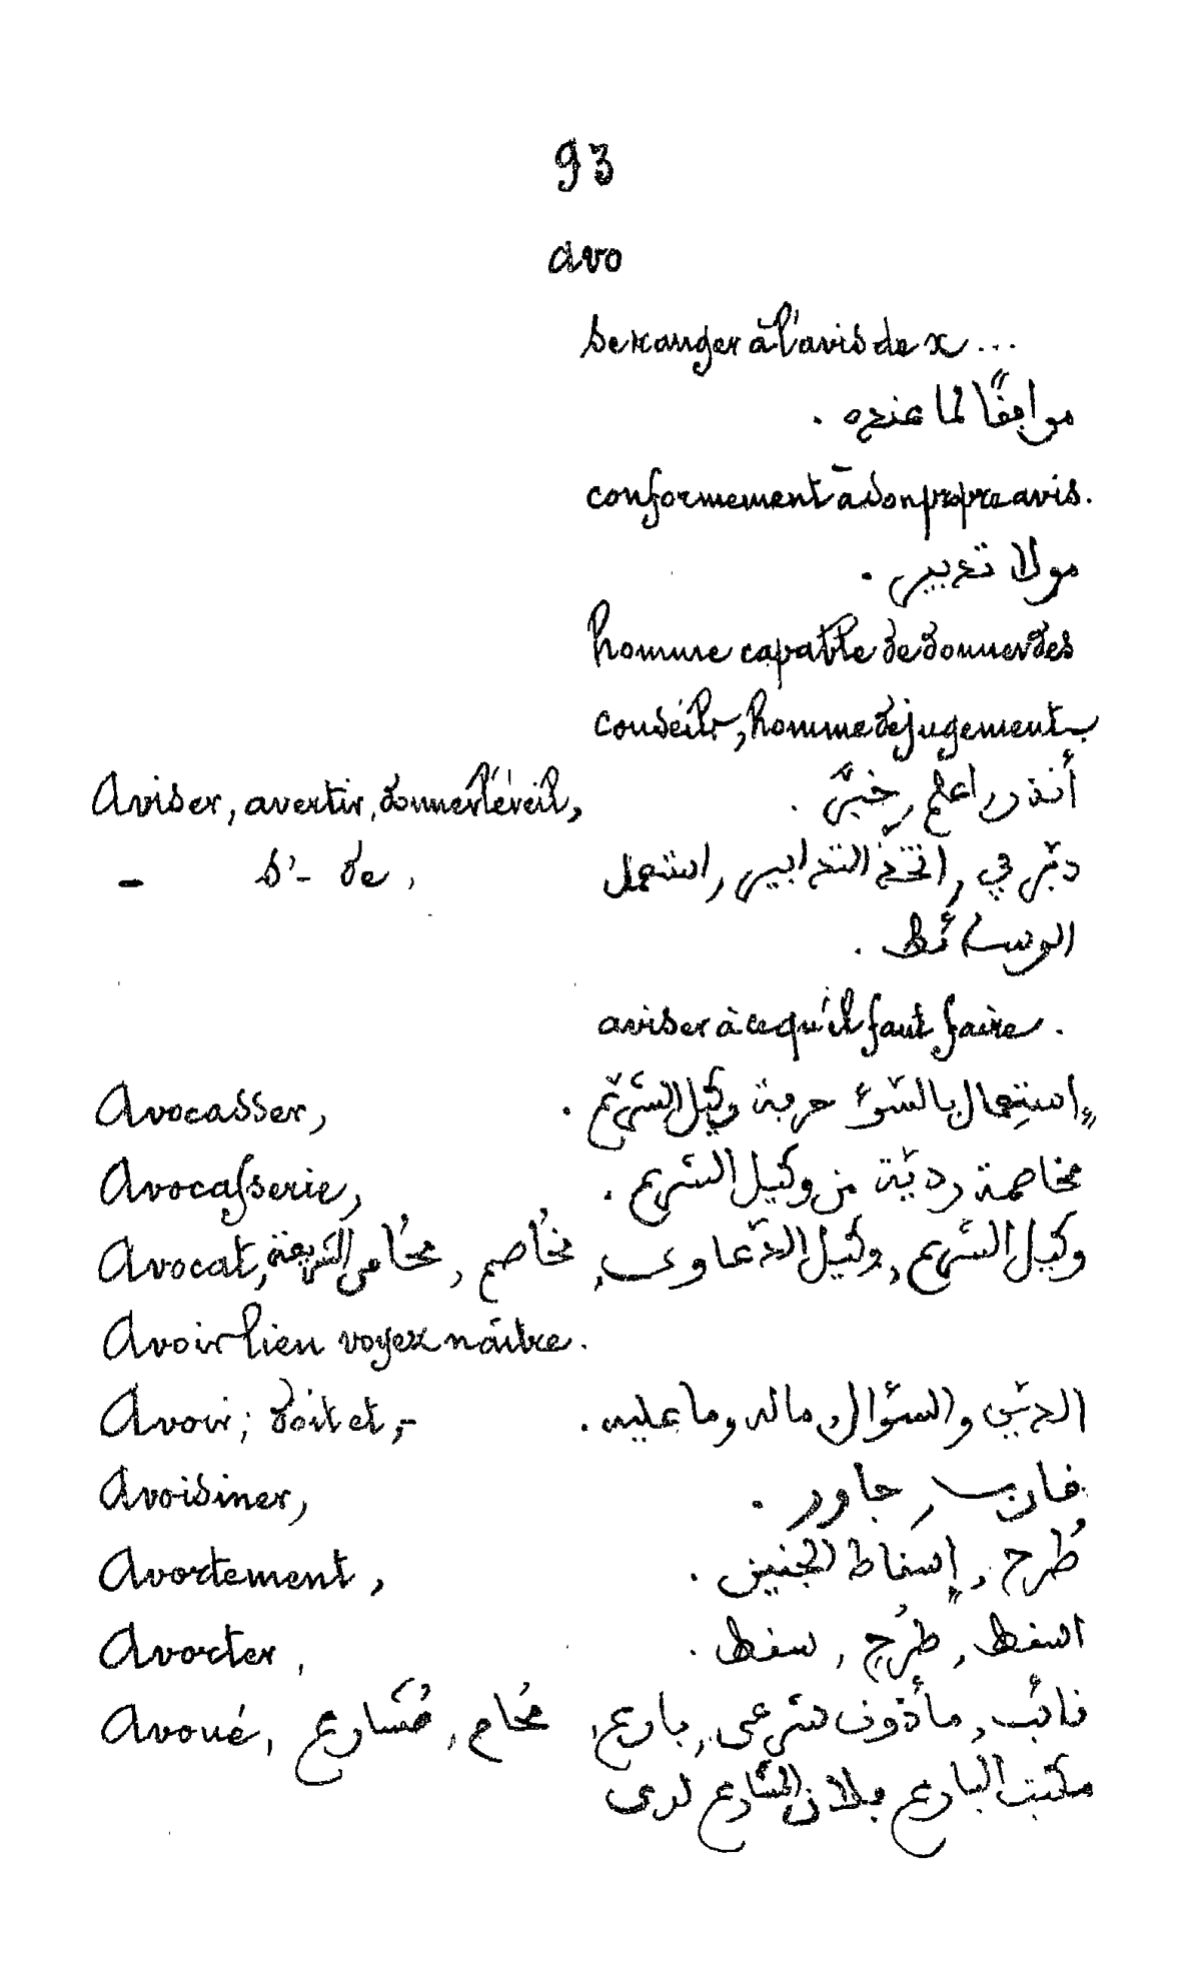 93
avo
se ranger à l'avis de x ...
موافقًا لما عنده .
conformement à son propre avis.
مولا تدبير .
homme capable de donner des
conseils, homme de jugement
Aviser, avertir, donner l'éveil, أنذر, اعلم, خبّر .
- s'- de, دبّر في, اتّخذ التدابير, استعمل
الوسائط .
aviser à ce qu'il faut faire.
Avocasser, إستِعمال بالسّوء حرفة وكيل الشّريع .
Avocasserie, مخاصمة رديّة من وكيل الشّريع .
Avocat, وكيل الشّريع, وكيل الدّعاوى, مخُاصم, محُامى الشريعة
Avoir lieu voyez naître.
Avoir; doit et,- الديّن والسؤال, ماله وما عليه .
Avoisiner, قارب, جاور .
Avortement, طُرح, إسقاط الجنين .
Avorter, اسقط, طرُح, سقط .
Avoué, نائب, مأذون شرعى, بارع, مُحام, مُشارع
مكتب البارع فلان الشّارع لدى